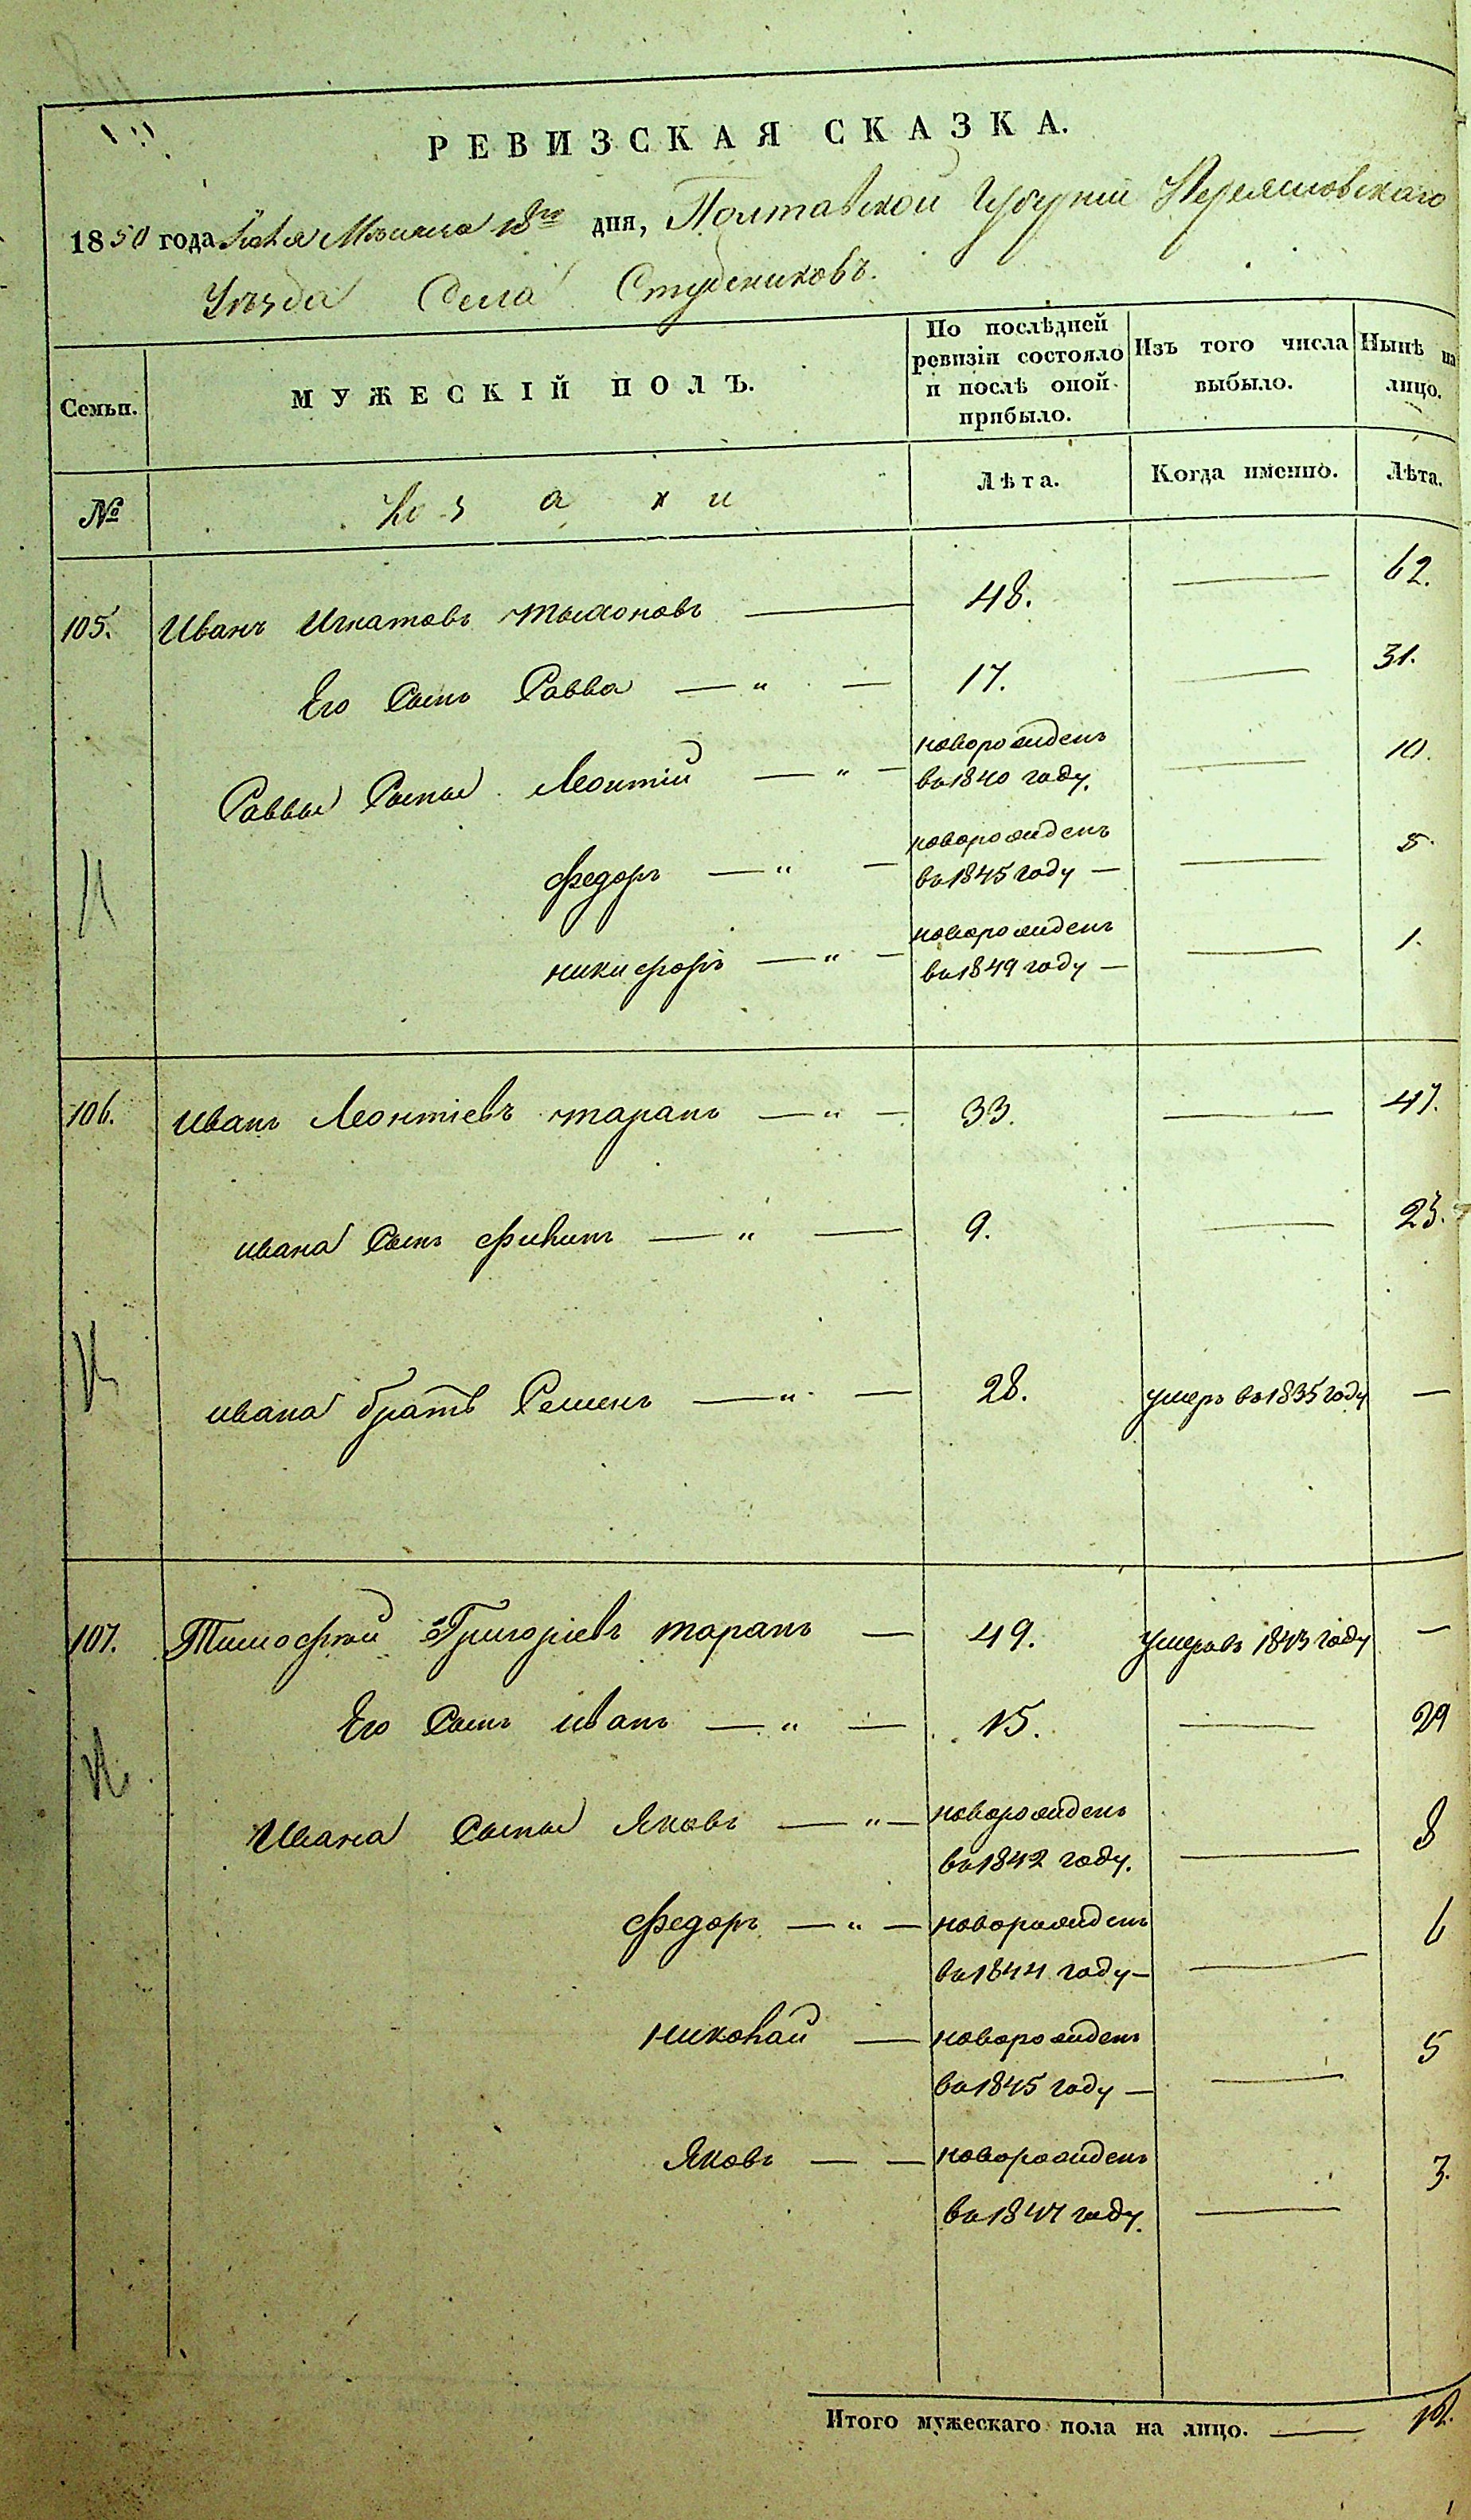 РЕВИЗСКАЯ СКАЗКА.
1850 года Июля Месяца 18го дня, Полтавской Губерніи Переясловскаго
Уезда Села Студениковъ.
Семьи.
МУЖЕСКІЙ ПОЛЪ.
По послѣдней
ревизіи состояло
и послѣ оной
прибыло.
Изъ того числа
выбыло.
Нынѣ на
лицо.
№
Козаки
Лѣта.
Когда именно.
Лѣта.
105. Иванъ Игнатовъ тыхоновъ — 48. — 62.
Его Сынъ Савва — " — 17. — 31.
Саввы Сыны Леонтій — " — новорожденъ въ 1840 году. — 10.
федоръ — " — новорожденъ въ 1845 году — — 5.
никифоръ — " — новорожденъ въ 1849 году — — 1.
106. иванъ Леонтіевъ таранъ — " — 33. — 47.
ивана Сынъ филипъ — " — 9. — 23.
ивана братъ Семенъ — " — 28. умеръ въ 1835 году —
107. Тимофей Григоріевъ таранъ — 49. умеръ въ 1843 году —
Его Сынъ иванъ — " — 15. — 29
Ивана Сыны Яковъ — " — новорожденъ въ 1842 году. — 8
федоръ — " — новорожденъ въ 1844 году — — 6
николай — новорожденъ въ 1845 году — — 5
Яковъ — — новорожденъ въ 1847 году. — 3.
Итого мужескаго пола на лицо. —